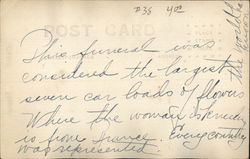 #38 4.00
POST CARD
This funeral was
considered the largest
seven car loads of flowers
Where the woman is kneeling
is from France. Every country
was represented.
in the world